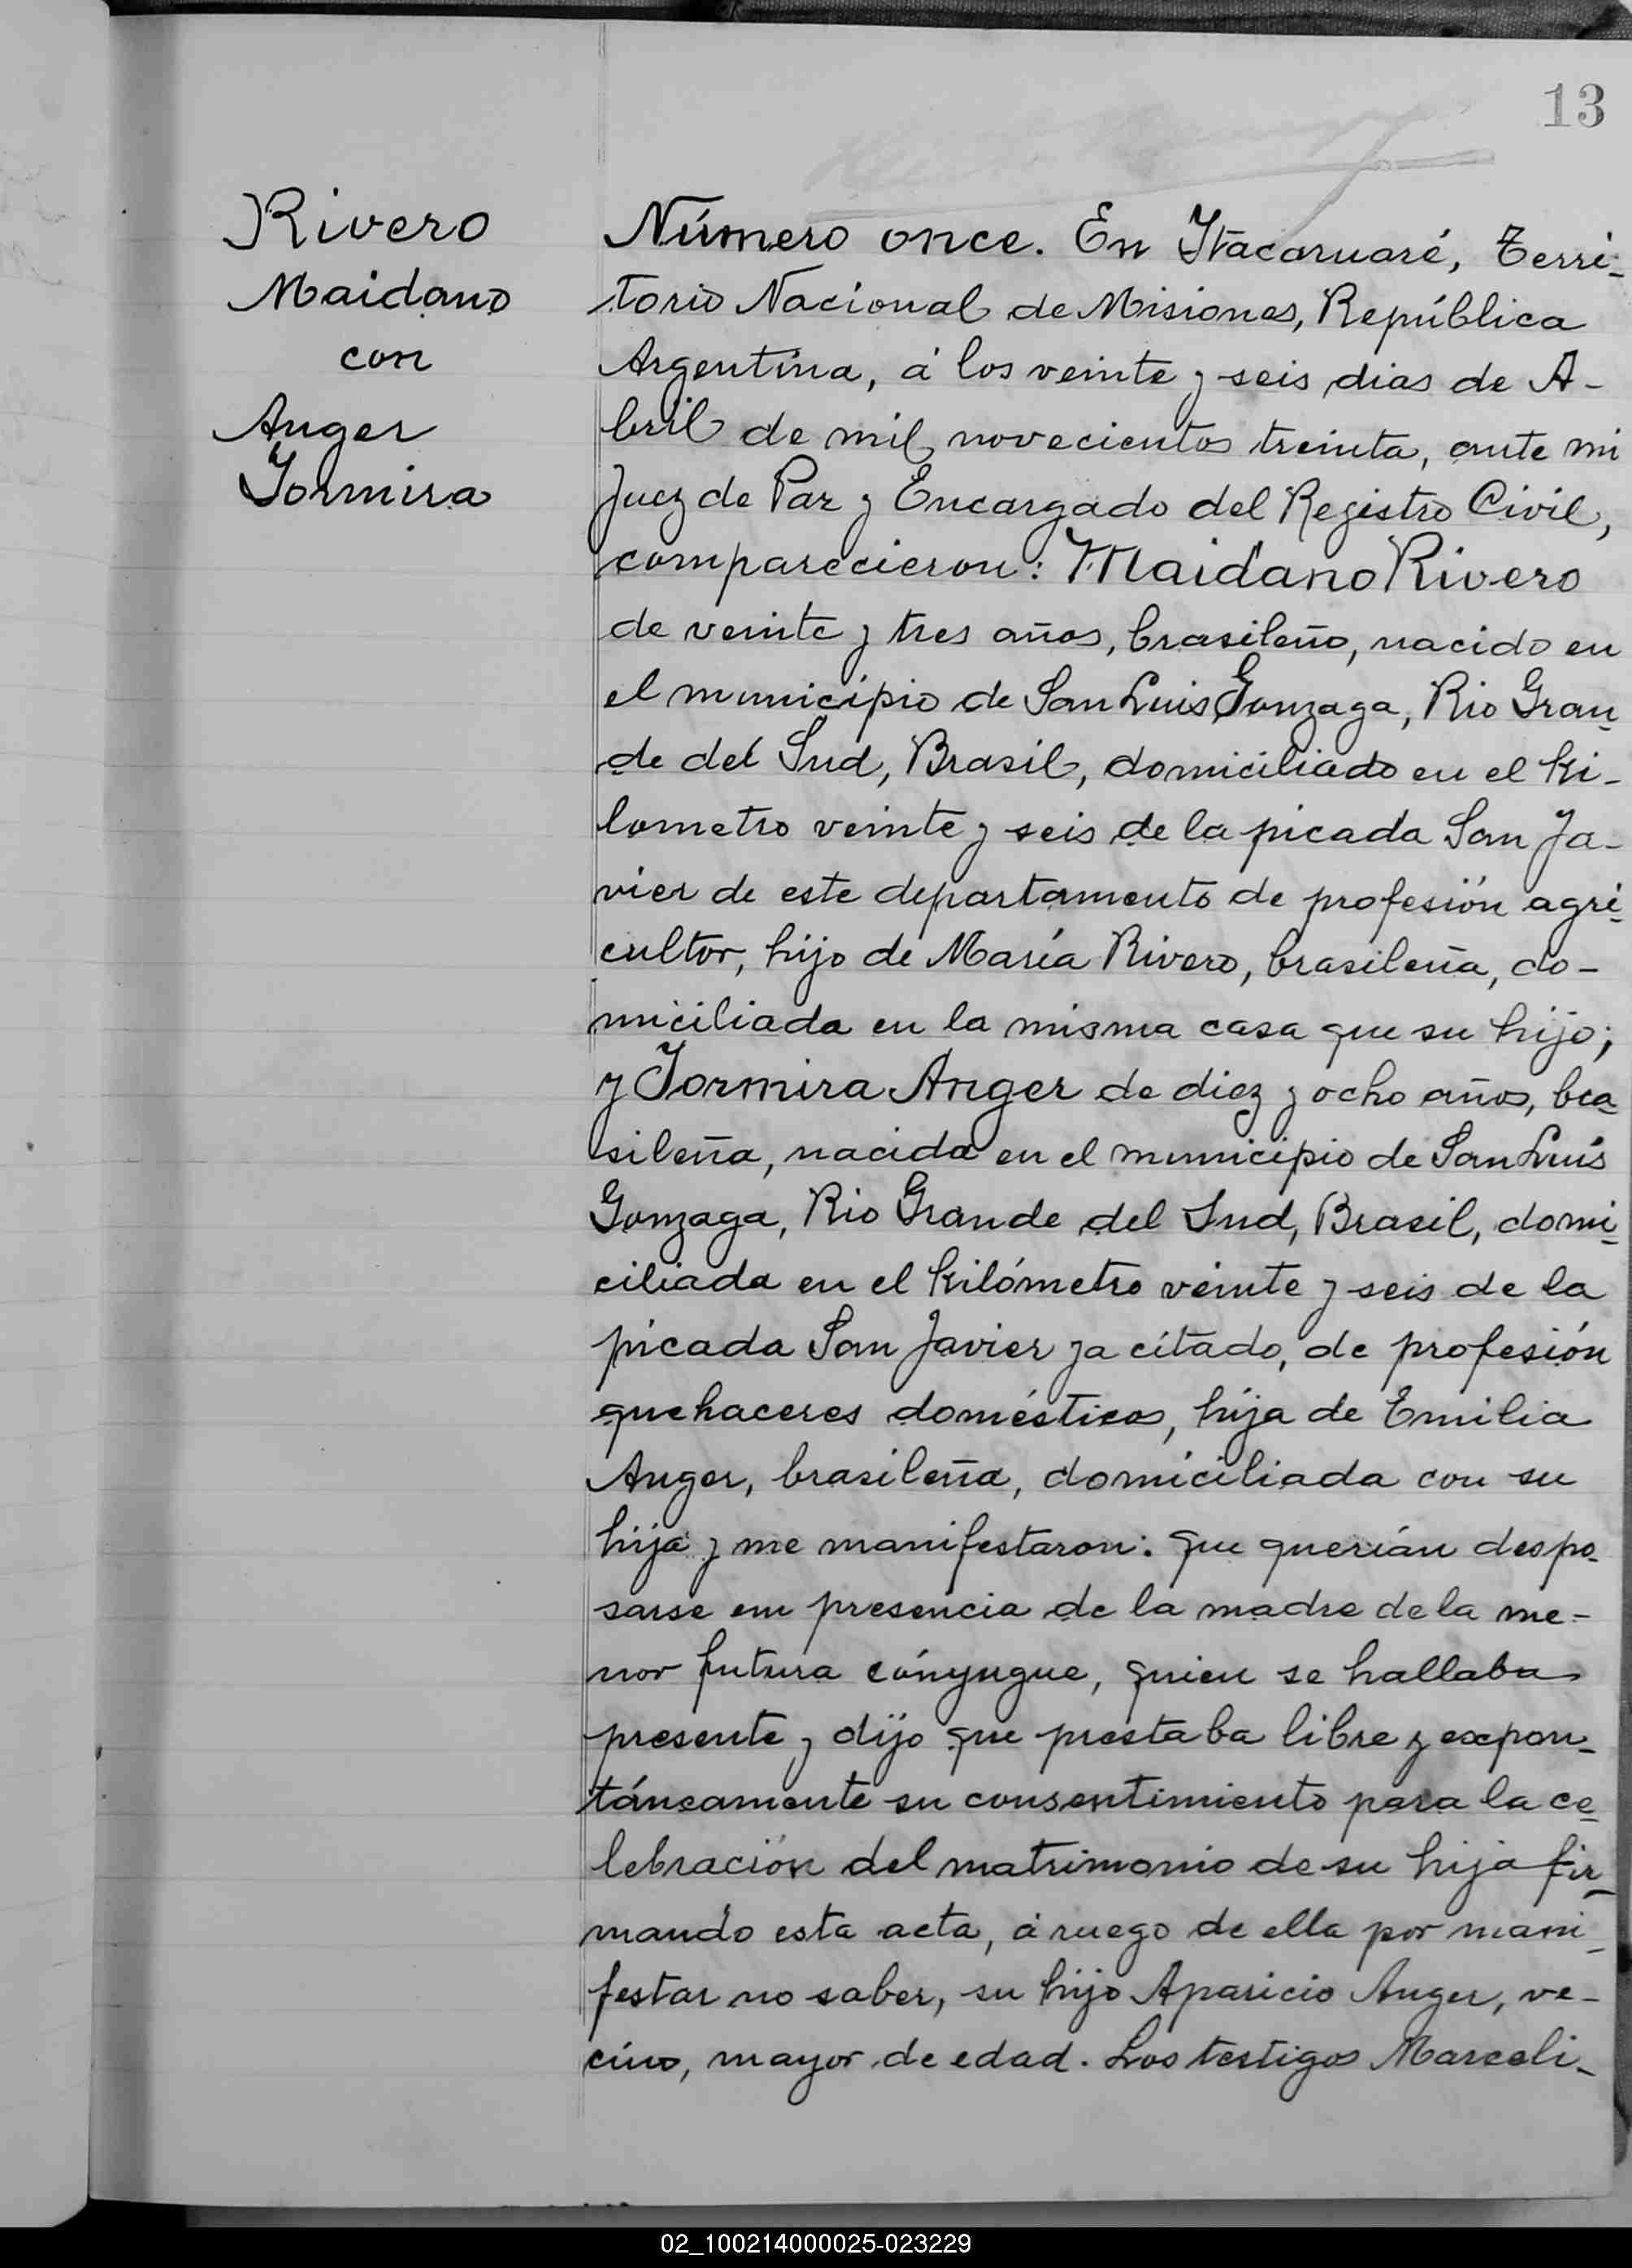 13
Rivero
Maidano
con
Anger
Jormira
Número once. En Itacaruaré, Terri-
torio Nacional de Misiones, República
Argentina, á los veinte y seis dias de A-
bril de mil novecientos treinta, ante mi
Juez de Paz y Encargado del Registro Civil,
comparecieron: Maidano Rivero
de veinte y tres años, brasileño, nacido en
el municipio de San Luis Gonzaga, Rio Gran-
de del Sud, Brasil, domiciliado en el ki-
lometro veinte y seis de la picada San Ja-
vier de este departamento de profesión agri-
cultor, hijo de María Rivero, brasileña, do-
miciliada en la misma casa que su hijo;
y Jormira Anger de diez y ocho años, bra-
sileña, nacida en el municipio de San Luis
Gonzaga, Rio Grande del Sud, Brasil, domi-
ciliada en el kilómetro veinte y seis de la
picada San Javier ya citado, de profesión
quehaceres domésticos, hija de Emilia
Anger, brasileña, domiciliada con su
hija y me manifestaron: que querían despo-
sarse em presencia de la madre de la me-
nor futura cónyugue, quien se hallaba
presente y dijo que prestaba libre y expon-
táneamente su consentimiento para la ce-
lebración del matrimonio de su hija fir-
mando esta acta, á ruego de ella por mani-
festar no saber, su hijo Aparicio Anger, ve-
cino, mayor de edad. Los testigos Marceli-
02_100214000025-023229